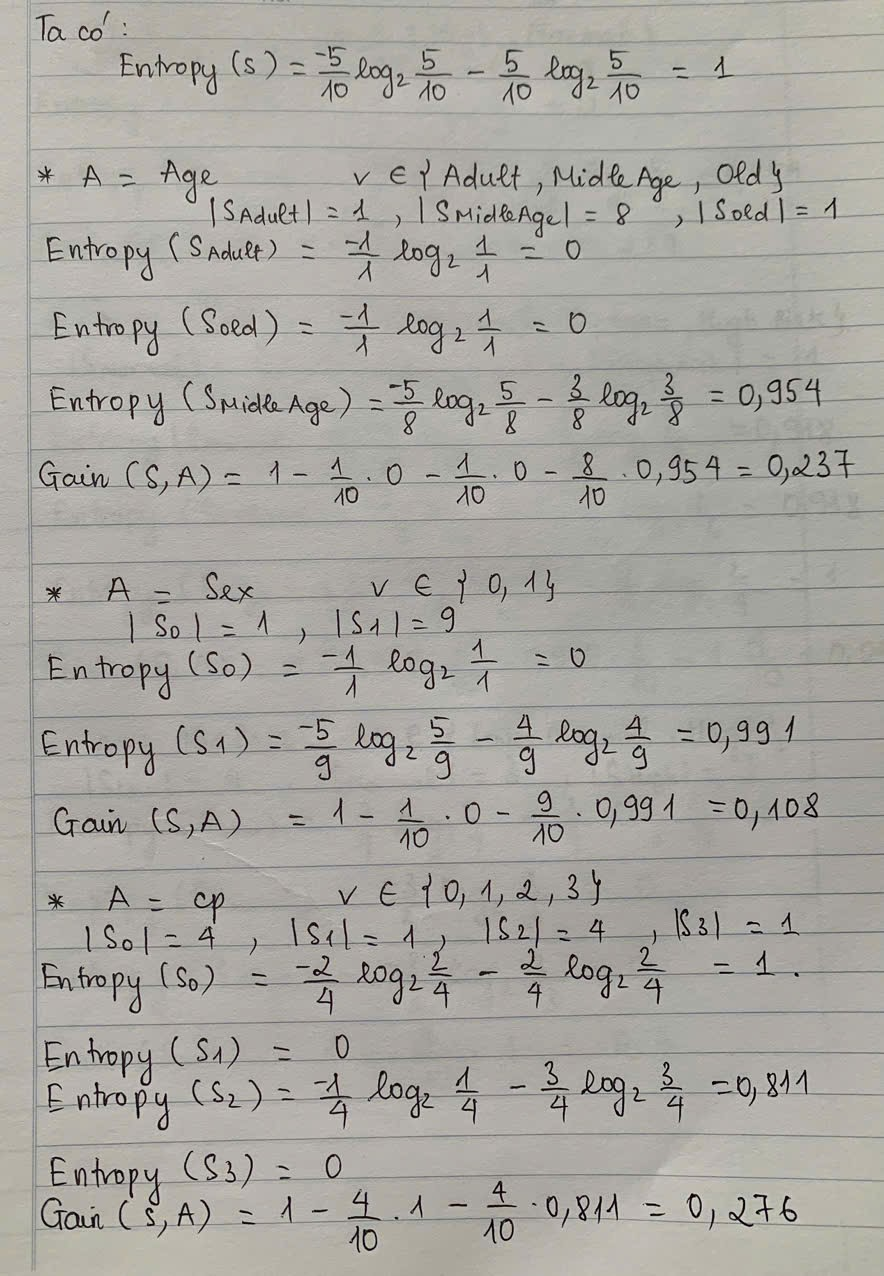 Ta có :
Entropy (S) = -5/10 log₂ 5/10 - 5/10 log₂ 5/10 = 1
* A = Age v ∈ { Adult , MidleAge , Old }
|S Adult| = 1 , |S MidleAge| = 8 , |S old| = 1
Entropy (S Adult) = -1/1 log₂ 1/1 = 0
Entropy (S old) = -1/1 log₂ 1/1 = 0
Entropy (S Midle Age) = -5/8 log₂ 5/8 - 3/8 log₂ 3/8 = 0,954
Gain (S, A) = 1 - 1/10 . 0 - 1/10 . 0 - 8/10 . 0,954 = 0,237
* A = Sex v ∈ { 0, 1 }
|S₀| = 1 , |S1| = 9
Entropy (S₀) = -1/1 log₂ 1/1 = 0
Entropy (S1) = -5/9 log₂ 5/9 - 4/9 log₂ 4/9 = 0,991
Gain (S, A) = 1 - 1/10 . 0 - 9/10 . 0,991 = 0,108
* A = cp v ∈ { 0, 1 , 2 , 3 }
|S₀| = 4 , |S1| = 1 , |S2| = 4 , |S3| = 1
Entropy (S₀) = -2/4 log₂ 2/4 - 2/4 log₂ 2/4 = 1 .
Entropy (S1) = 0
Entropy (S₂) = -1/4 log₂ 1/4 - 3/4 log₂ 3/4 = 0,811
Entropy (S3) = 0
Gain (S, A) = 1 - 4/10 . 1 - 4/10 . 0,811 = 0,276